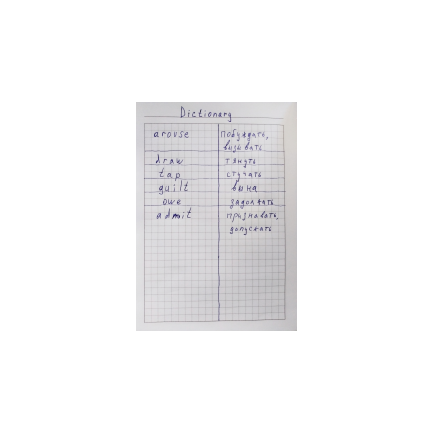 Dictionary
arouse побуждать,
вызывать
draw тянуть
tap стучать
guilt вина
owe задолжать
admit признавать,
допускать